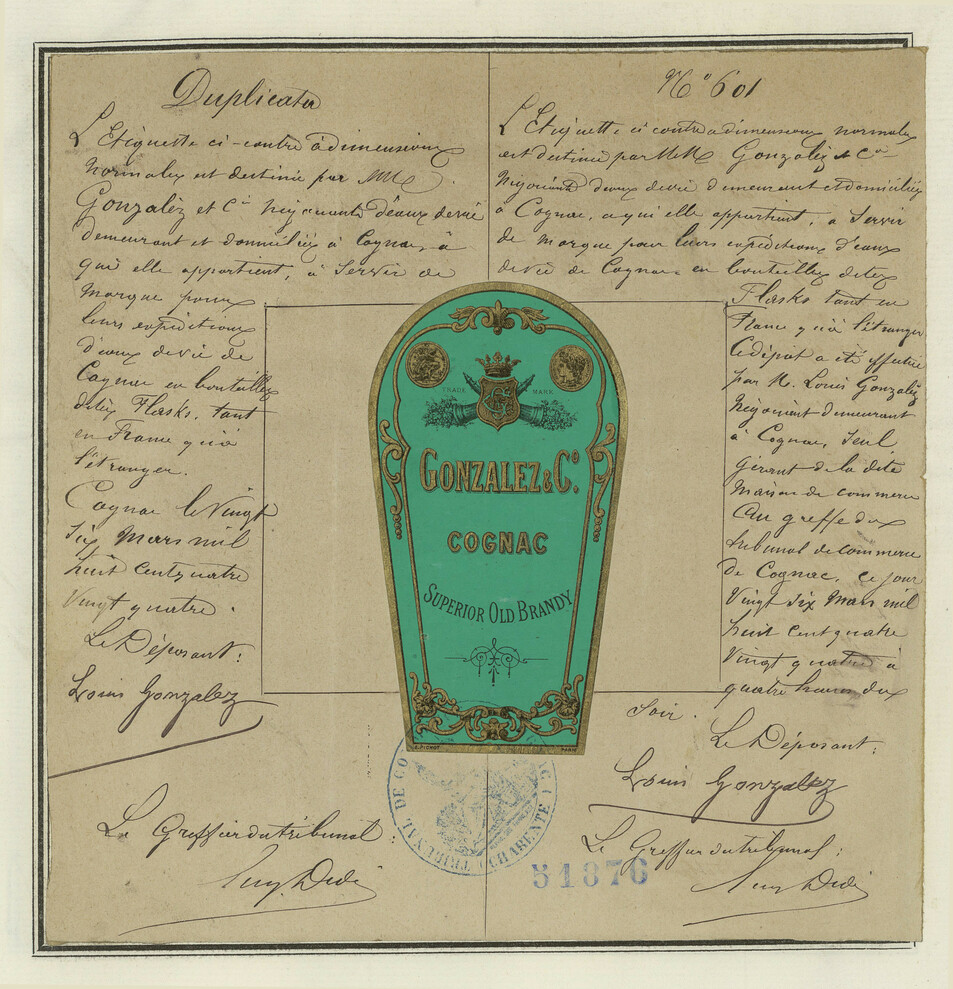 Duplicata
L'Etiquette ci-contre à dimensions
normales est destinée par MM
Gonzalèz et Cie Négociants d'eaux de vie
demeurant et domiciliés à Cognac, à
qui elle appartient, à Servir de
Marque pour
leurs expéditions
d'eaux de vie de
Cognac en bouteilles
dites Flasks, tant
en France qu'à
l'étranger.
Cognac le Vingt
Six Mars mil
huit cent quatre
Vingt quatre.
Le Déposant:
Louis Gonzalez
Le Greffier du tribunal
N° 601
L'Etiquette ci contre a dimensions normales
est destinée par MM Gonzalèz et Cie
Négociants d'eaux de vie demeurant et domiciliés
à Cognac, a qui elle appartient, a Servir
de marque pour leurs expéditions d'eaux
de vie de Cognac en bouteilles dites
Flasks tant en
France qu'à l'étranger
Ce dépot a été effectué
par M. Louis Gonzalèz
Négociant demeurant
à Cognac, Seul
gérant de la dite
Maison de commerce
Au greffe du
tribunal de commerce
de Cognac, ce jour
Vingt Six Mars mil
huit cent quatre
Vingt quatre à
quatre heures du
Soir.
Le Déposant:
Louis Gonzalez
Le Greffier du tribunal:
TRADE MARK
GC
GONZALEZ & Co.
COGNAC
SUPERIOR OLD BRANDY
PARIS
TRIBUNAL DE CO
CHARENTE
51876